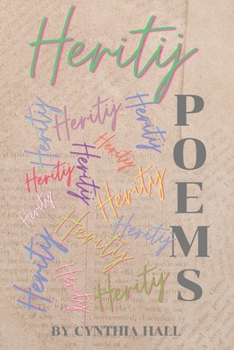 Heritij
Heritij
Heritij
Heritij
Heritij
Heritij
Heritij
Heritij
Heritij
Heritij
Heritij
Heritij
Heritij
Heritij
POEMS
BY CYNTHIA HALL